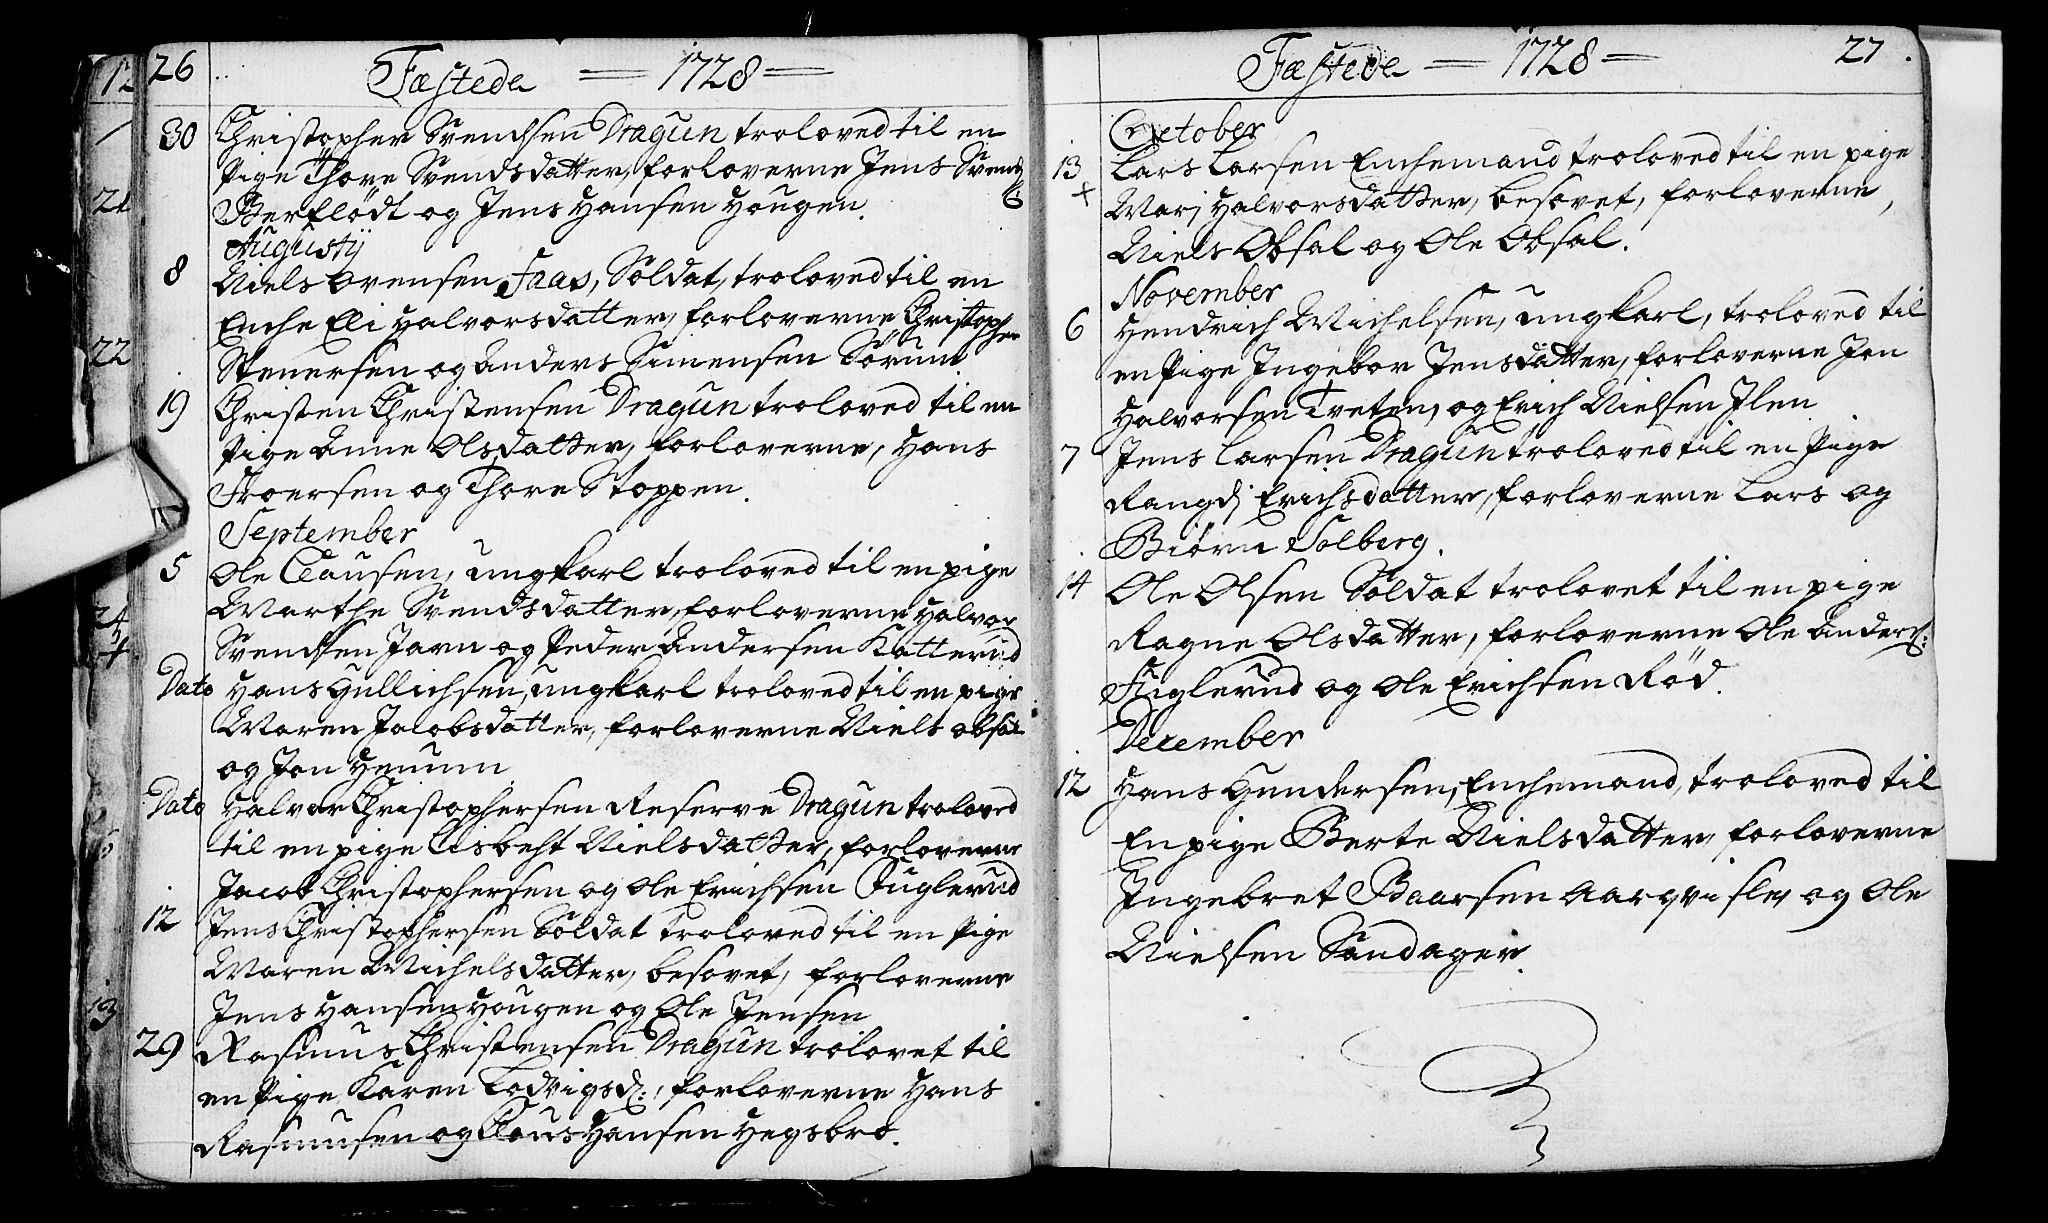 26 Fæstede = 1728 =
30 Christopher Svendsen Dragun troloved til en
Pige Thore Svendsdatter, forloverne Jens Svends:
Berflødt og Jens Hansen Hougen.
Augustij
8 Niels Svensen Faas, Soldat, troloved til en
Enche Eli Halvorsdatter, forloverne Christopher
Stenersen og Anders Simensen Sørum.
19 Christen Christensen Dragun troloved til en
Pige Anne Olsdatter, forloverne, Hans
Froersen og Thore Stoppen.
September
5 Ole Clausen, ungkarl troloved til en pige
Marthe Svendsdatter, forloverne Halvor
Svendsen Jarn og Peder Andersen Katterud
Dato Hans Gullichsen, ungkarl troloved til en pige
Maren Jacobsdatter, forloverne Niels Obsal
og Jon Henum
Dato Halvor Christophersen Reserve Dragun troloved
til en pige Lisbeht Nielsdatter, forloverne
Jacob Christophersen og Ole Erichsen Fuglerud
12 Jens Christophersen Soldat troloved til en Pige
Maren Michelsdatter, besovet, forloverne
Jens Hansen Hougen og Ole Jensen
29 Rasmus Christensen Dragun trolovet til
en Pige Karen Lodvigsd:, forloverne Hans
Rasmusen og Claus Hansen Hegsbro.
Fæstede = 1728 = 27.
October
13 Lars Larsen Enchemand troloved til en pige
+ Marj Halvorsdatter, besovet, forloverne,
Niels Obsal og Ole Obsal.
November
6 Hendrich Michelsen, ungkarl, troloved til
en Pige Ingebor Jensdatter, forloverne Jon
Halvorsen Tveten, og Erich Nielsen Jlen
7 Jens Larsen Dragun troloved til en Pige
Rangdj Erichsdatter, forloverne Lars og
Biørn Solberg.
14 Ole Olsen Soldat trolovet til en pige
Ragne Olsdatter, forloverne Ole Anders:
Fuglerud og Ole Erichsen Rød.
December
12 Hans Gundersen, Enchemand, troloved til
En pige Berte Nielsdatter, forloverne
Ingebret Baarsen Aarqvisle, og Ole
Nielsen Sundager.